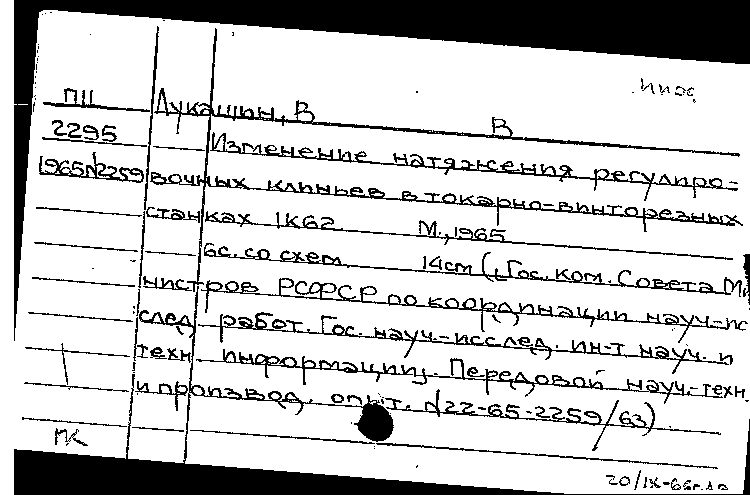 ПП Лукашин, В В
2295 Изменение натяжения регулиро-
1965№2259 вочных клиньев в токарно-винторезных
станках 1К62 М., 1965
6с. со схем. 14см (Гос. ком. Совета Ми
нистров РСФСР по координации науч.-ис
след. работ. Гос. науч.-исслед. ин-т науч. и
техн. информации. Передовой науч.-техн.
и производ. опыт. №22-65-2259/63)
ПК
20/IX-66г.